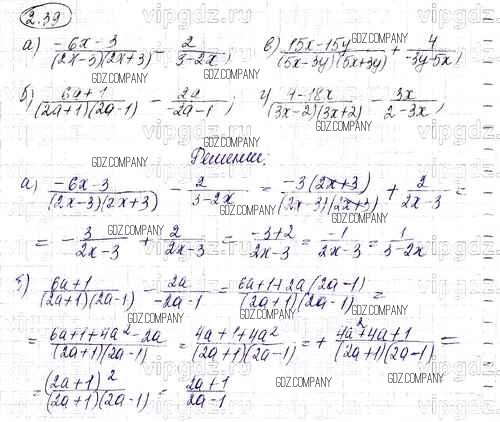 2.39
а) (-6x-3)/((2x-3)(2x+3)) - 2/(3-2x); в) (15x-15y)/((5x-3y)(5x+3y)) + 4/(-3y-5x);
б) (6a+1)/((2a+1)(2a-1)) - 2a/(-2a-1); г) (4-18x)/((3x-2)(3x+2)) - 3x/(2-3x);
Решение:
а) (-6x-3)/((2x-3)(2x+3)) - 2/(3-2x) = -3(2x+3)/((2x-3)(2x+3)) + 2/(2x-3) =
= -3/(2x-3) + 2/(2x-3) = (-3+2)/(2x-3) = -1/(2x-3) = 1/(3-2x)
б) (6a+1)/((2a+1)(2a-1)) - 2a/(-2a-1) = (6a+1+2a(2a-1))/((2a+1)(2a-1)) =
= (6a+1+4a²-2a)/((2a+1)(2a-1)) = (4a+1+4a²)/((2a+1)(2a-1)) = + (4a²+4a+1)/((2a+1)(2a-1)) =
= (2a+1)²/((2a+1)(2a-1)) = (2a+1)/(2a-1)
vipgdz.ru
GDZ.COMPANY